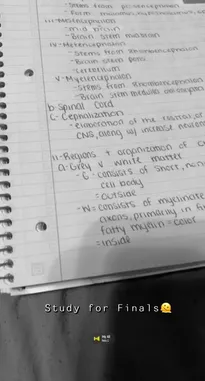 -Stems from prosencephalon
-Form
iii. Mesencephalon
-mid brain
-Brain stem midbrain
iv. Metencephalon
-Stems from Rhombencephalon
-Brain stem pons
-cerebellum
v. Myelencephalon
-Stems from Rhombencephalon
-Brain stem medulla oblongata
b. Spinal Cord
c. Cephalization
-elaboration of the rostral
CNS, along w/ increase neurons
ii. Regions + organization of
a. Grey v. White matter
-G: consists of short, non
cell body
=outside
-W= consists of myelinated
axons, primarily in
fatty myelin = color
=inside
Study for Finals🫠